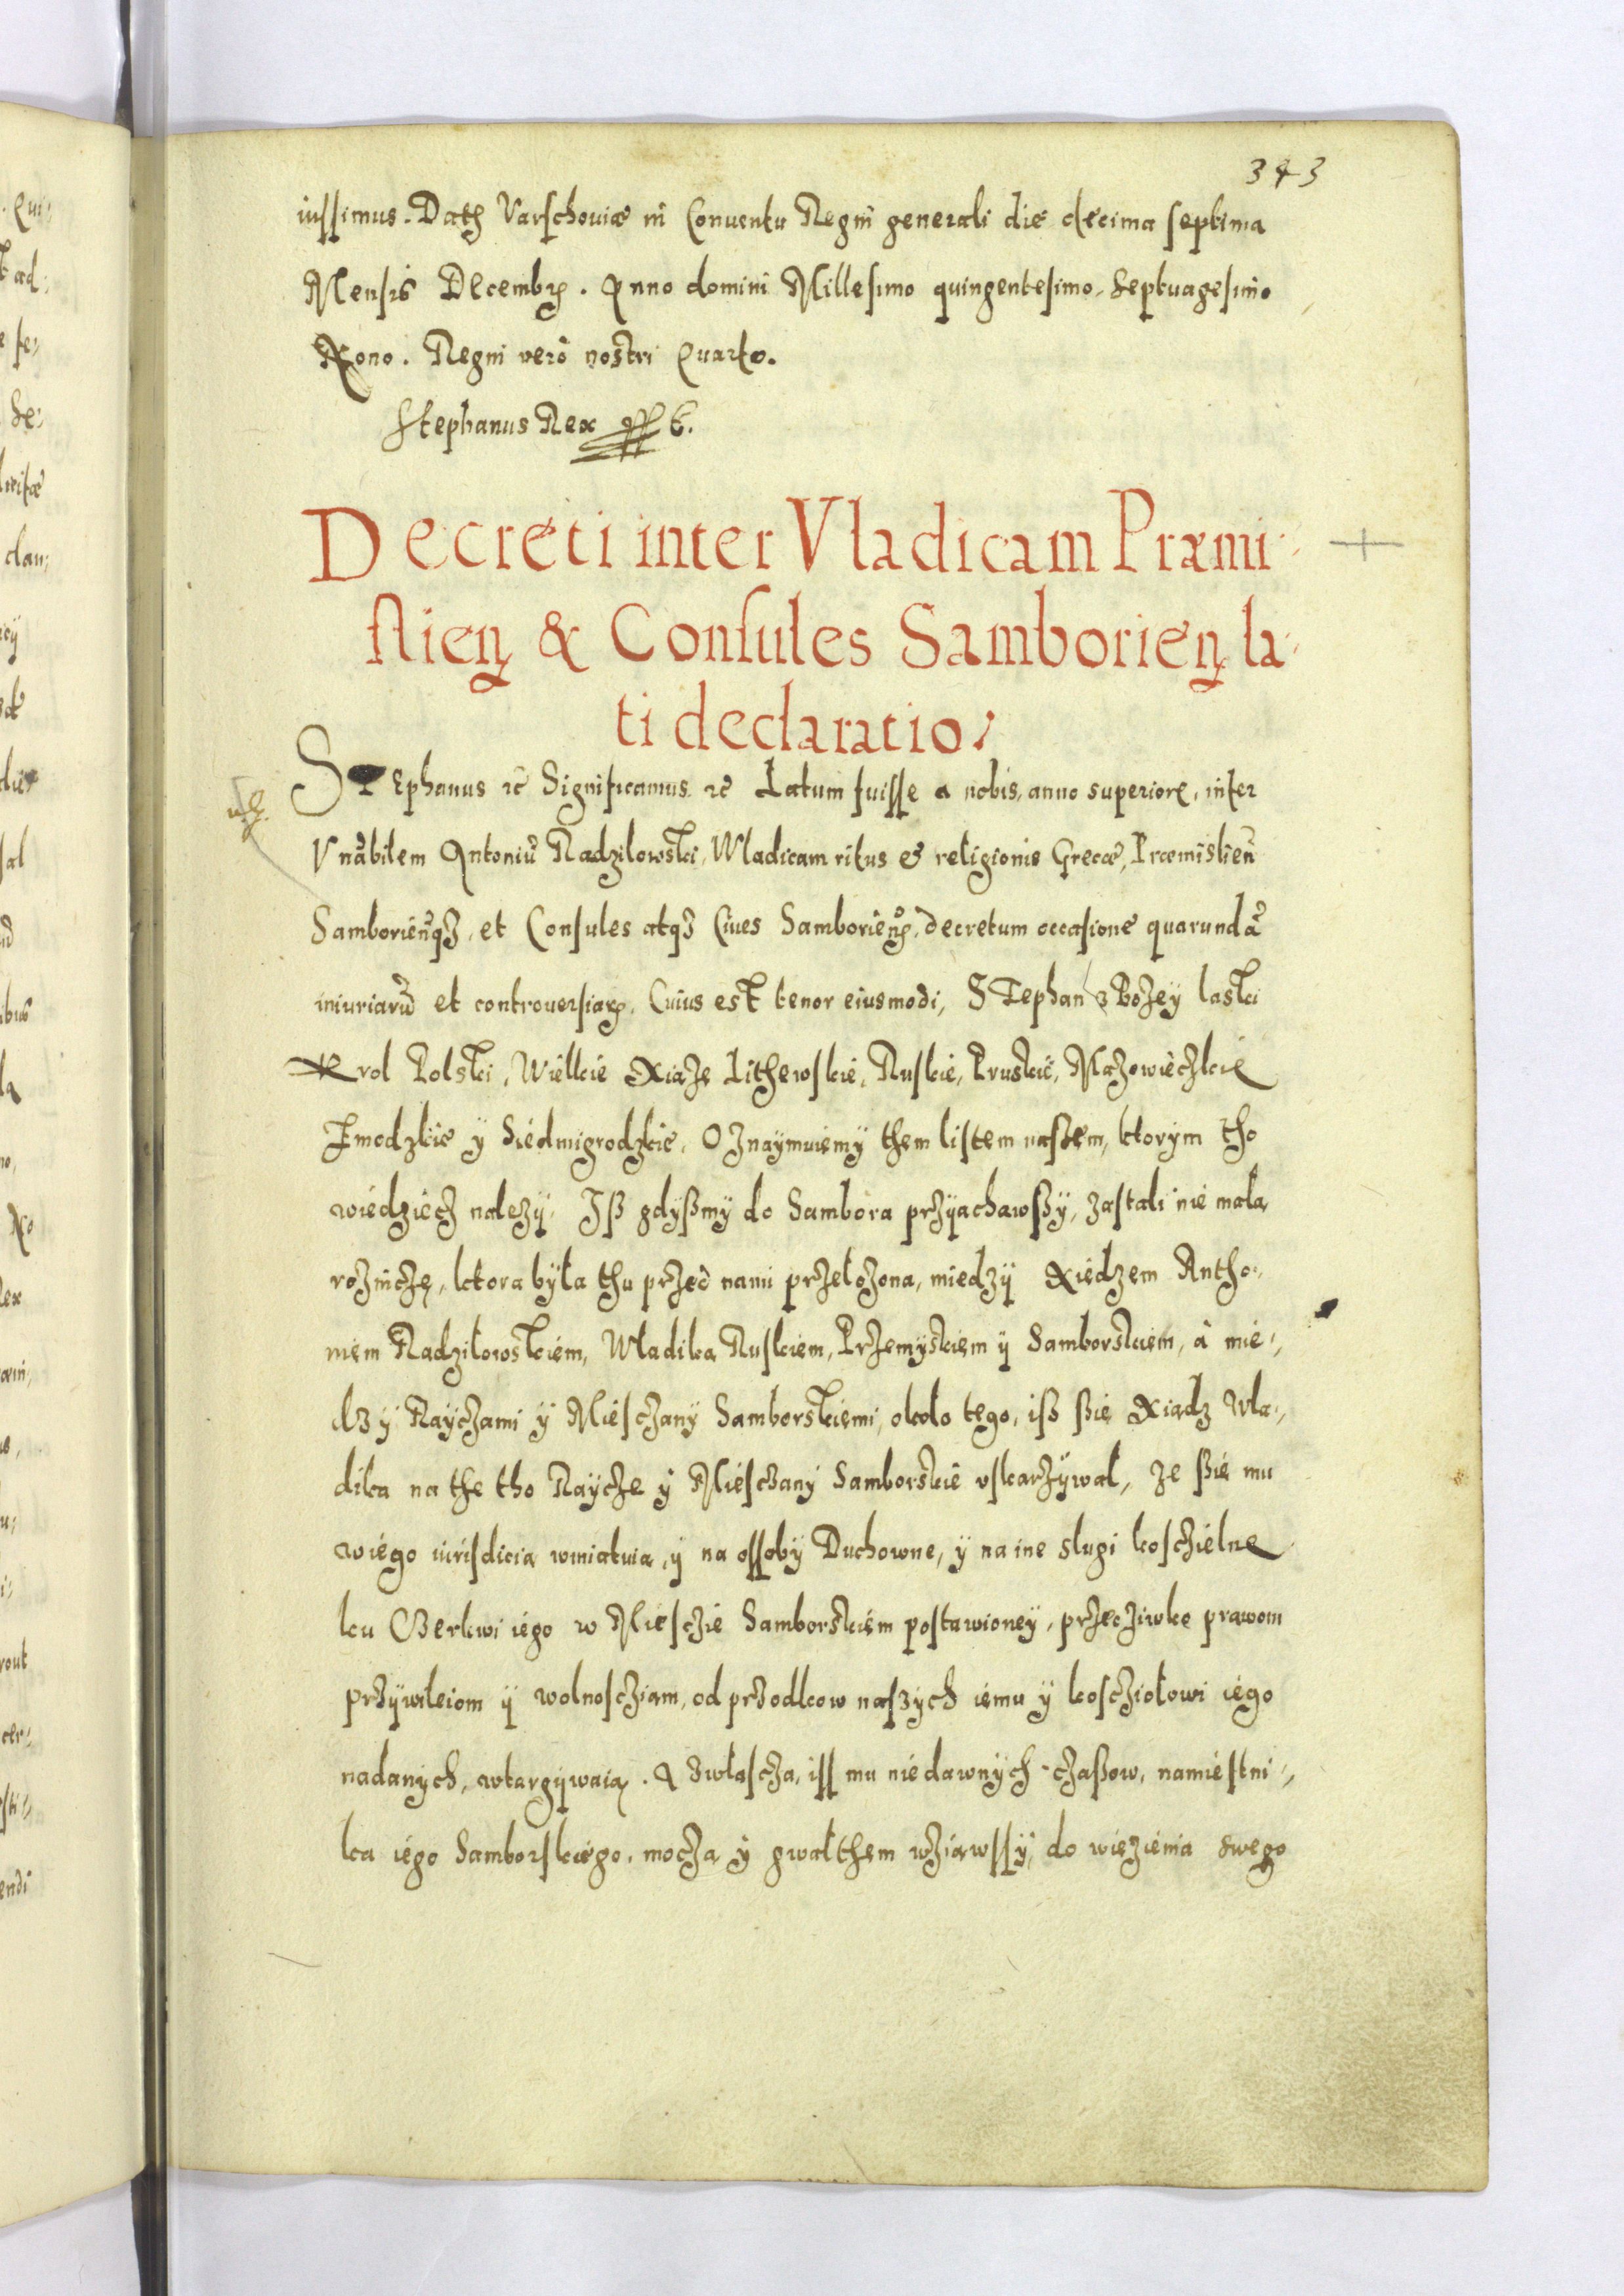 343
iussimus. Datȩ Varschouiæ in Conuentu Regni generali die decima septima
Mensis Decembrȩ. Anno domini Millesimo quingentesimo Septuagesimo
Nono. Regni verò nostri Quarto.
Stephanus Rex
Decreti inter Vladicam Præmi-
slien̄ & Consules Samborien̄ la-
ti declaratio.
STephanus etc Significamus etc Latum fuisse a nobis, anno superiore, inter
Vnābilem Antoniū Radzilowski, Wladicam ritus et religionis Grecæ, Præmislien̄
Samborien̄q3, et Consules atq3 Ciues Samborien̄, decretum occasione quarundā
iniuriarū et controuersiarȩ, Cuius est tenor eiusmodi, STephan z Bożeÿ laski
Krol Polski, Wielkie Xiaże Lithewskie, Ruskie, Pruskie, Mazowieczkie
Zmodzkie ÿ Siedmigrodzkie, Oznaÿmuiemÿ them listem naßem, ktorÿm tho
wiedziecz należÿ. Iß gdÿßmÿ do Sambora przÿachawßÿ, zastali nie mala
roznicze, ktora bÿła thu przed nami przełożona, miedzÿ Xiedzem Antho-
niem Radziłowskiem, Wladika Ruskiem, Przemÿskiem ÿ Samborskiem, à mie-
dzÿ Raÿczami ÿ Miesczanÿ Samborskiemi, około tego, iß ßie Xiadz Wla-
dika na the tho Raÿcze ÿ Miesczanÿ Samborskie vskarżÿwał, że ßie mu
wiego iurisdicia wmiatuia, ÿ na ossobÿ Duchowne, ÿ na ine slugi kosczielne
ku Czerkwi iego w Miesczie Samborskiem postawioneÿ, przecziwko prawom
przÿwileiom ÿ wolnosczjam, od przodkow naszÿch iemu ÿ kosczjołowi iego
nadanÿch, wtargÿwaią. A zwłascza, iss mu niedawnÿch czaßow, namiestni-
ka iego Samborskiego, mocza ÿ gwałthem wziawssÿ, do wiezienia swego